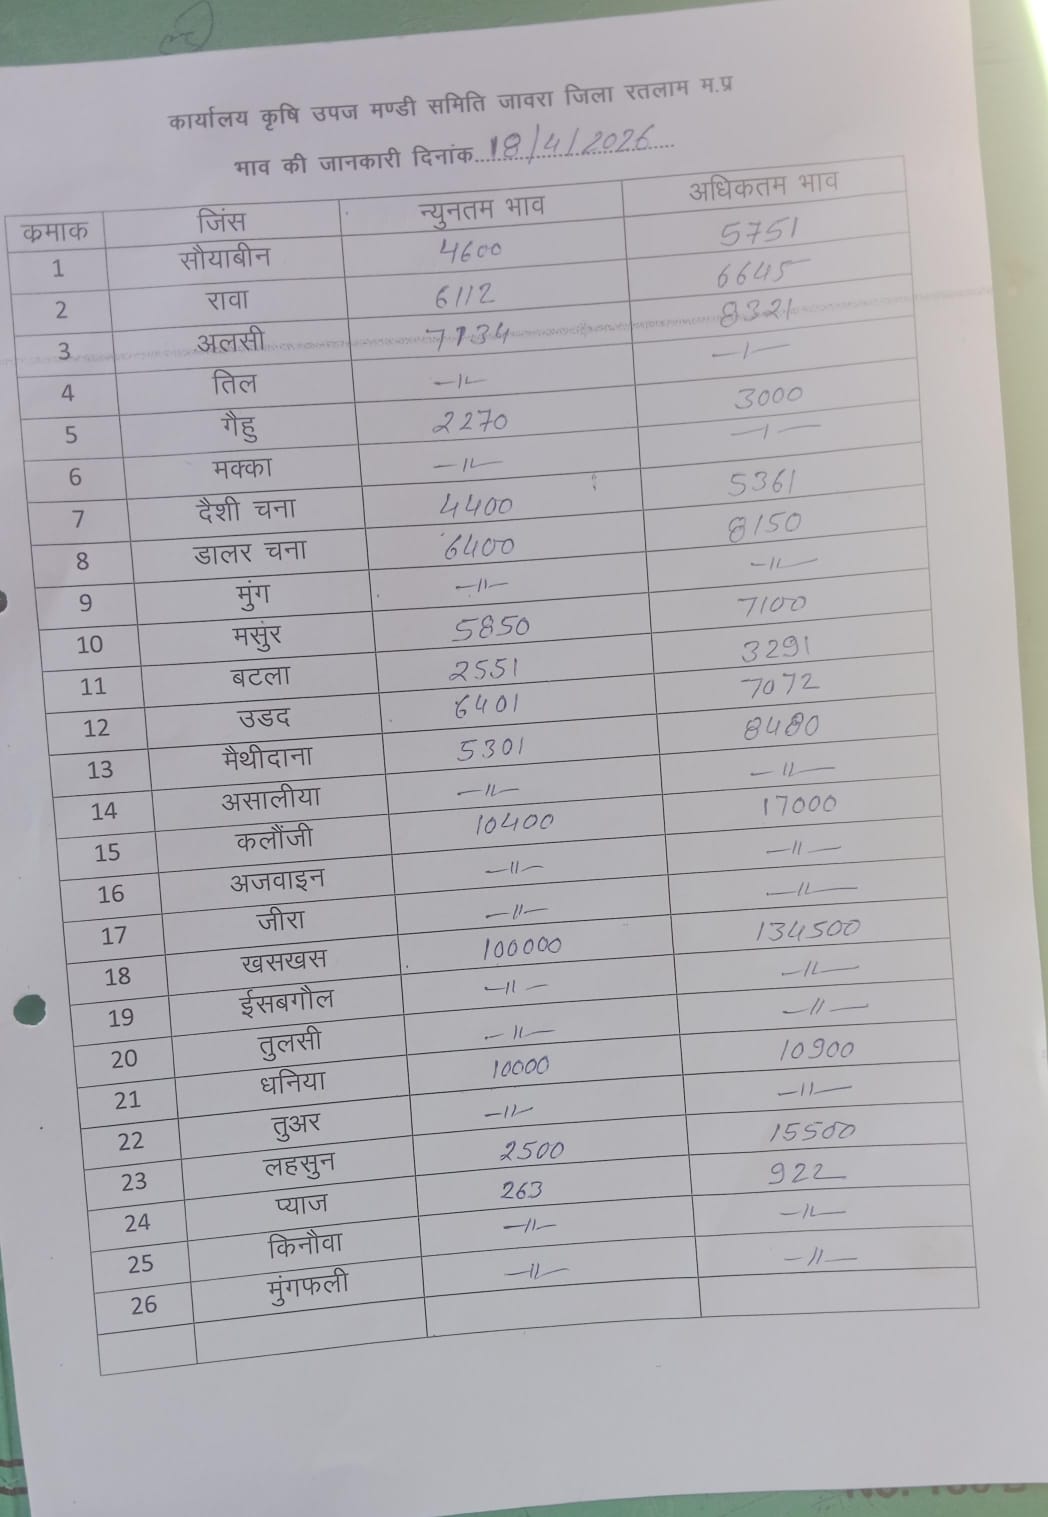 कार्यालय कृषि उपज मण्डी समिति जावरा जिला रतलाम म.प्र
भाव की जानकारी दिनांक...18/4/2026...
कमाक जिंस न्युनतम भाव अधिकतम भाव
1 सौयाबीन 4600 5751
2 रावा 6112 6645
3 अलसी 7134 8321
4 तिल —॥— —।—
5 गैहु 2270 3000
6 मक्का —॥— —।—
7 दैशी चना 4400 5361
8 डालर चना 6400 8150
9 मुंग —॥— —॥—
10 मसुंर 5850 7100
11 बटला 2551 3291
12 उडद 6401 7072
13 मैथीदाना 5301 8480
14 असालीया —॥— —॥—
15 कलौंजी 10400 17000
16 अजवाइन —॥— —॥—
17 जीरा —॥— —॥—
18 खसखस 100000 134500
19 ईसबगौल —॥— —॥—
20 तुलसी —॥— —॥—
21 धनिया 10000 10900
22 तुअर —॥— —॥—
23 लहसुन 2500 15500
24 प्याज 263 922
25 किनौवा —॥— —॥—
26 मुंगफली —॥— —॥—